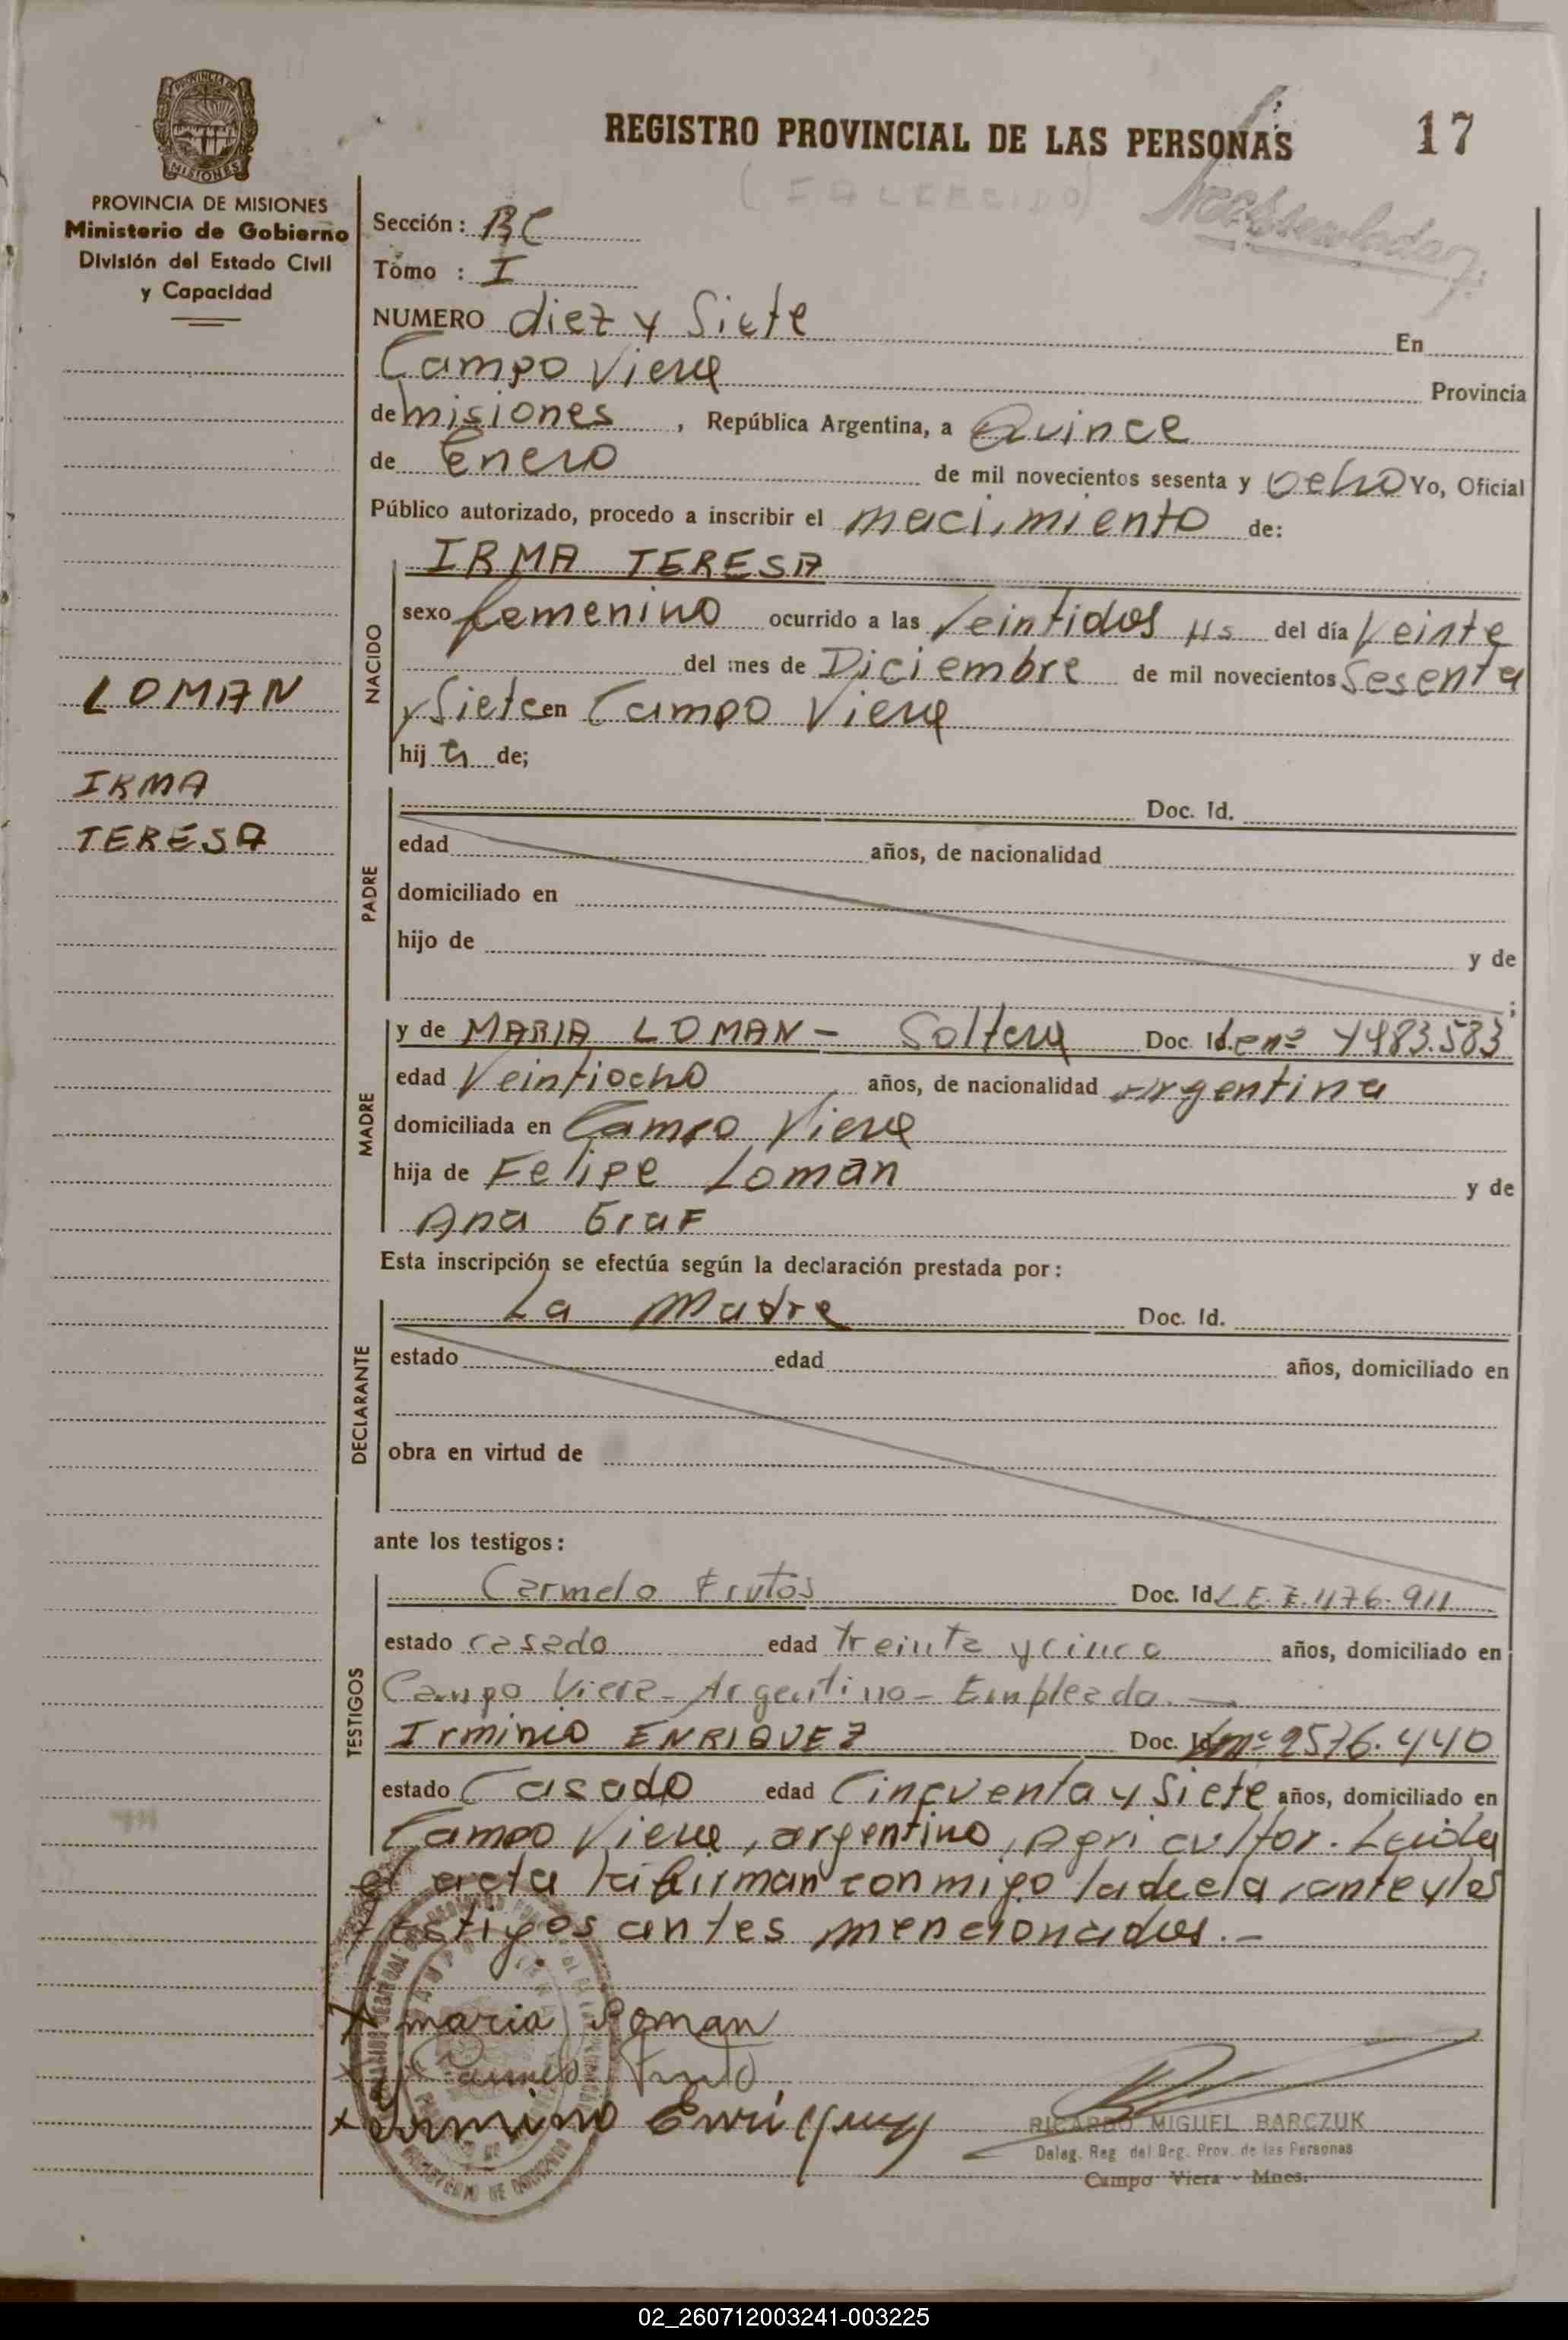 PROVINCIA DE MISIONES
Ministerio de Gobierno
División del Estado Civil
y Capacidad
REGISTRO PROVINCIAL DE LAS PERSONAS
17
(FALLECIDO)
Sección: BC
Tomo : I
NUMERO diez y Siete En
Campo Viera Provincia
de misiones, República Argentina, a Quince
de Enero de mil novecientos sesenta y ocho Yo, Oficial
Público autorizado, procedo a inscribir el macimiento de:
NACIDO
IRMA TERESA
sexo femenino ocurrido a las Veintidos Hs del día Veinte
del mes de Diciembre de mil novecientos Sesenta
y Siete en Campo Viera
hija de;
LOMAN
IRMA
TERESA
PADRE
Doc. Id.
edad años, de nacionalidad
domiciliado en
hijo de y de
;
MADRE
y de MARIA LOMAN - Soltera Doc. Id. 4483.583
edad Veintiocho años, de nacionalidad argentina
domiciliada en Campo Viera
hija de Felipe Loman y de
Ana Graf
Esta inscripción se efectúa según la declaración prestada por:
DECLARANTE
La Madre Doc. Id.
estado edad años, domiciliado en
obra en virtud de
ante los testigos:
TESTIGOS
Carmelo Frutos Doc. Id. L.E. 7.476.911
estado casado edad treinta y cinco años, domiciliado en
Campo Viera - Argentino - Empleado. —
Irminio ENRIQUEZ Doc. Id. 2576.440
estado Casado edad Cincuenta y Siete años, domiciliado en
Campo Viera, argentino, Agricultor. Leida
el acta la firman conmigo la declarante y los
testigos antes mencionados. -
x maria Loman
x Carmelo Fruto
x Irminio Enriquez
RICARDO MIGUEL BARCZUK
Deleg. Reg. del Reg. Prov. de las Personas
Campo Viera - Mnes.
02_260712003241-003225